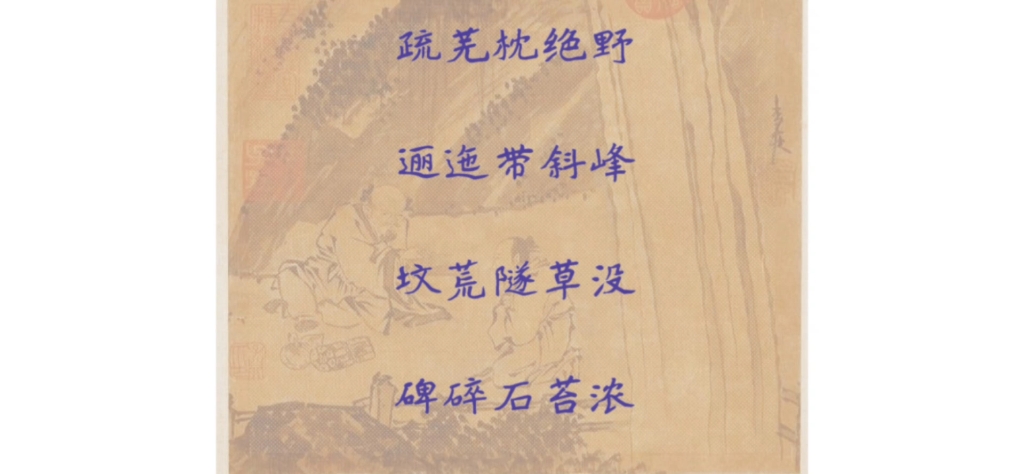 疏芜枕绝野
逦迤带斜峰
坟荒隧草没
碑碎石苔浓